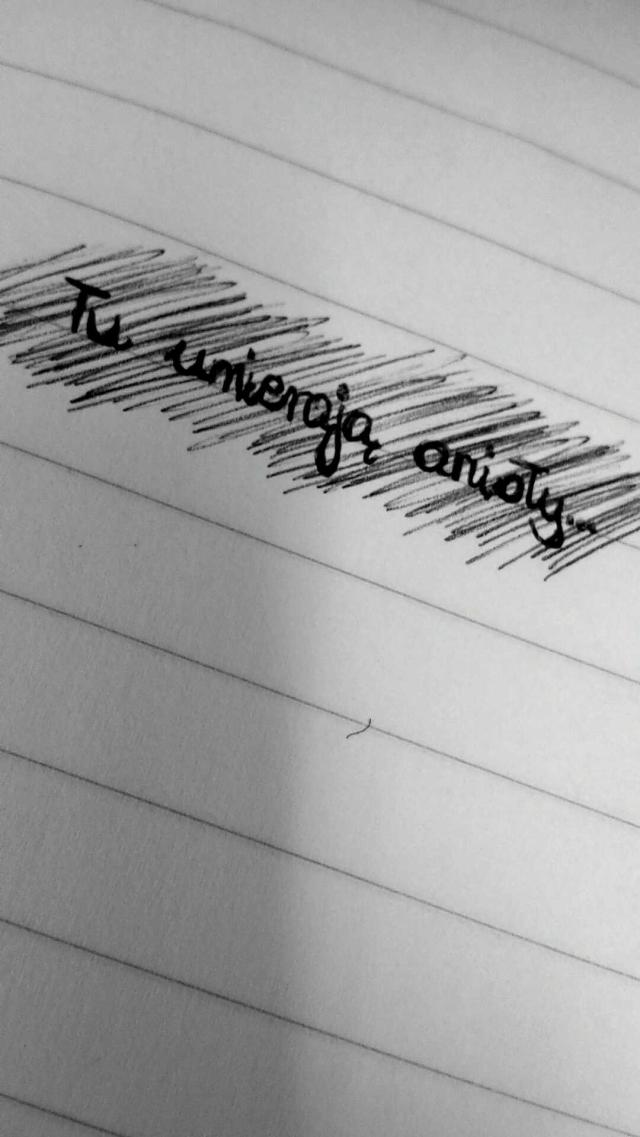 Tu umierają anioły...